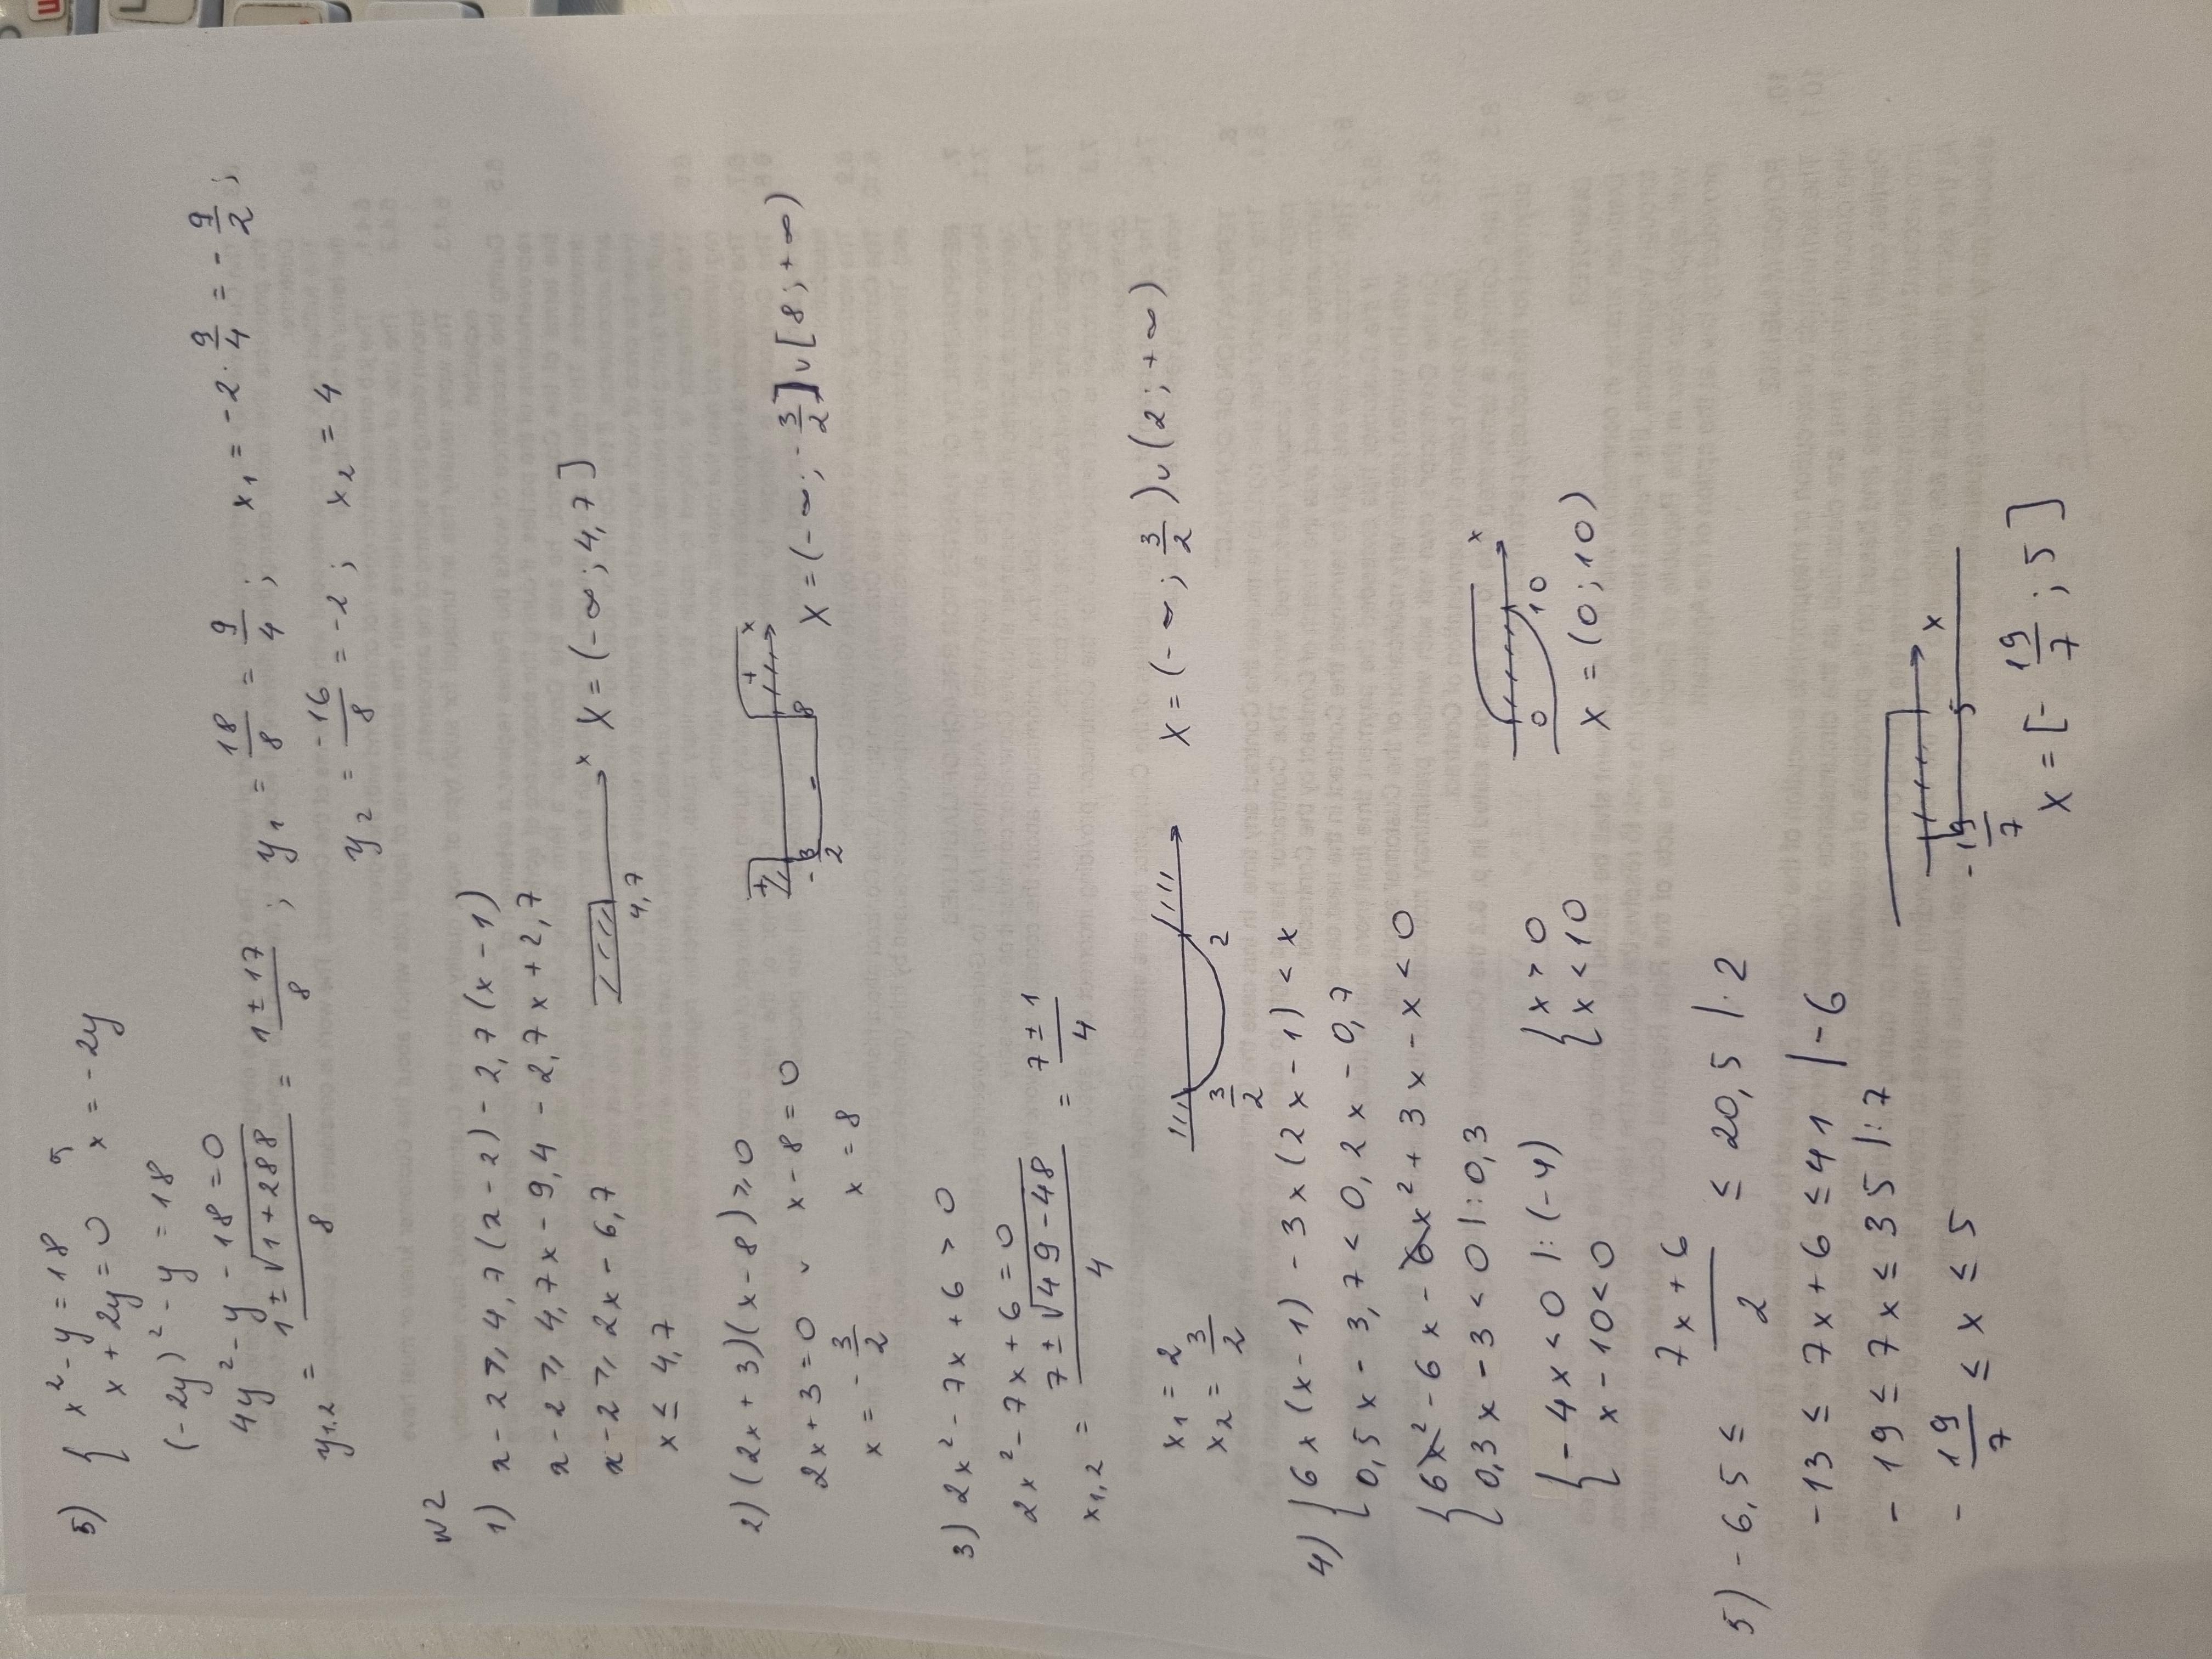 5) { x² - y = 18
x + 2y = 0   x = -2y
(-2y)² - y = 18
4y² - y - 18 = 0
y1,2 = (1 ± √(1 + 288))/8 = (1 ± 17)/8 ; y1 = 18/8 = 9/4 ; x1 = -2 · 9/4 = -9/2 ;
y2 = -16/8 = -2 ; x2 = 4
N2
1) x - 2 ≥ 4,7 (x - 2) - 2,7 (x - 1)
x - 2 ≥ 4,7x - 9,4 - 2,7x + 2,7
x - 2 ≥ 2x - 6,7
x ≤ 4,7   4,7   x   X = (-∞ ; 4,7]
2) (2x + 3)(x - 8) ≥ 0
2x + 3 = 0 ∨ x - 8 = 0   + - +   -3/2   8   x
x = -3/2   x = 8   X = (-∞ ; -3/2] ∪ [8 ; +∞)
3) 2x² - 7x + 6 > 0
2x² - 7x + 6 = 0
x1,2 = (7 ± √(49 - 48))/4 = (7 ± 1)/4
x1 = 2
x2 = 3/2   3/2   2   X = (-∞ ; 3/2) ∪ (2 ; +∞)
4) { 6x (x - 1) - 3x (2x - 1) < x
0,5x - 3,7 < 0,2x - 0,7
{ 6x² - 6x - 6x² + 3x - x < 0
0,3x - 3 < 0 |: 0,3
{ -4x < 0 |: (-4)   { x > 0   0   10   x
x - 10 < 0   x < 10   X = (0 ; 10)
5) -6,5 ≤ (7x + 6)/2 ≤ 20,5 |· 2
-13 ≤ 7x + 6 ≤ 41 | -6
-19 ≤ 7x ≤ 35 |: 7
-19/7 ≤ x ≤ 5   -19/7   5   x
X = [-19/7 ; 5]